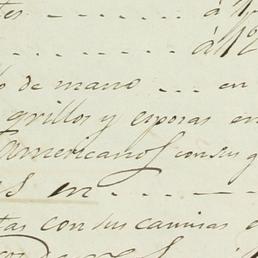 tes - - - - - - - á 1
- - - - - - - - á 1
o de mano - - - en
grillos y esposas en
Americanos con sus g
s en - - - - - -
tas con sus camisas